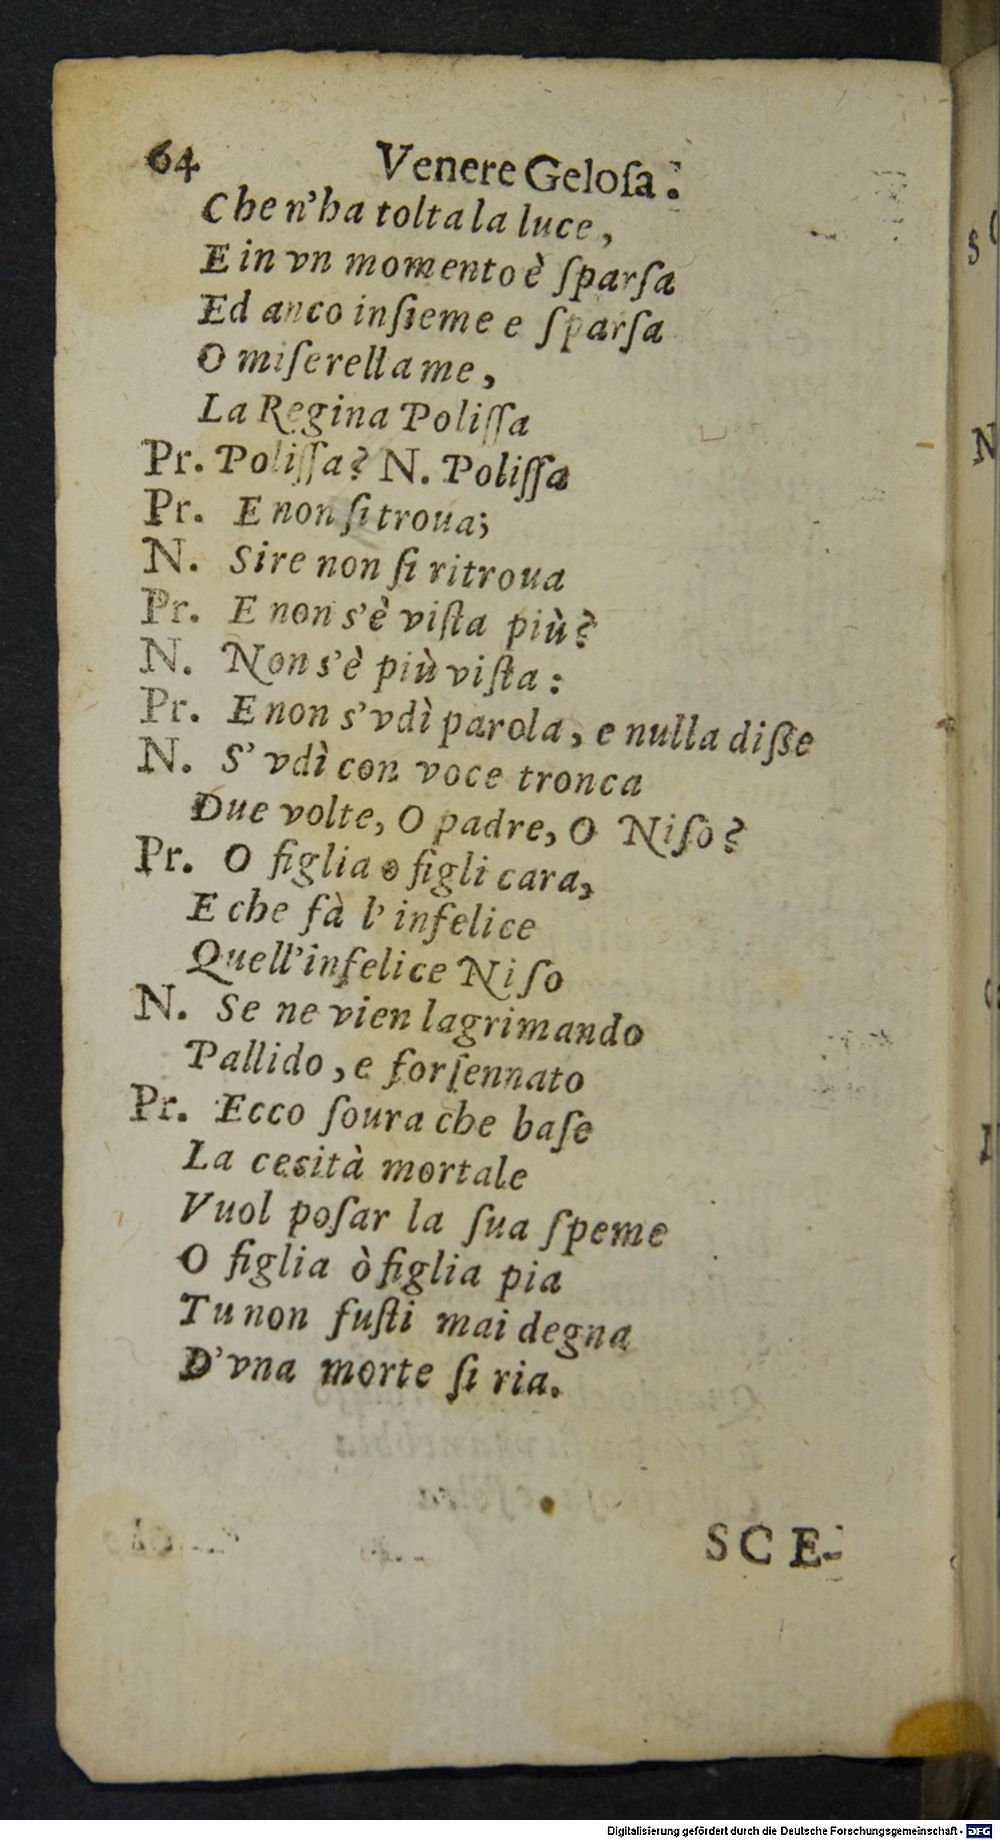 64 Venere Geloſa.
Che n'ha tolta la luce,
E in vn momento è ſparſa
Ed anco inſieme e ſparſa
O miſerella me,
La Regina Poliſſa
Pr. Poliſſa? N. Poliſſa
Pr. E non ſi troua;
N. Sire non ſi ritroua
Pr. E non s'è viſta più?
N. Non s'è più viſta:
Pr. E non s'vdì parola, e nulla diſſe
N. S'vdì con voce tronca
Due volte, O padre, O Niſo?
Pr. O figlia o figli cara,
E che fà l'infelice
Quell'infelice Niſo
N. Se ne vien lagrimando
Pallido, e forſennato
Pr. Ecco ſoura che baſe
La cecità mortale
Vuol poſar la ſua ſpeme
O figlia ò figlia pia
Tu non fuſti mai degna
D'vna morte ſi ria.
SCE-
Digitalisierung gefördert durch die Deutsche Forschungsgemeinschaft - DFG